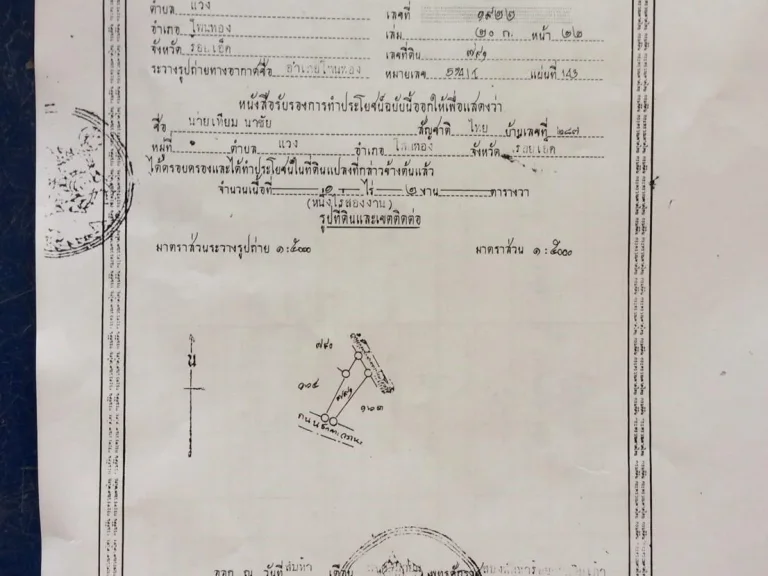 ตำบล แวง
เลขที่ ๑๙๒๒
อำเภอ โพนทอง
เล่ม ๒๐ ก. หน้า ๒๒
จังหวัด รอยเอ็ด
เลขที่ดิน ๗๙๑
ระวางรูปถ่ายทางอากาศชื่อ อำเภอโพนทอง หมายเลข แผ่นที่ 143
หนังสือรับรองการทำประโยชน์ฉบับนี้ออกให้เพื่อแสดงว่า
ชื่อ นายเทียม นาชัย สัญชาติ ไทย บ้านเลขที่ ๒๘๗
หมู่ที่ ตำบล แวง อำเภอ โพนทอง จังหวัด รอยเอ็ด
ได้ครอบครองและได้ทำประโยชน์ในที่ดินแปลงที่กล่าวข้างต้นแล้ว
จำนวนเนื้อที่ ๑ ไร่ ๒ งาน ตารางวา
(หนึ่งไร่สองงาน)
รูปที่ดินและเขตติดต่อ
มาตราส่วนระวางรูปถ่าย ๑:๕๐๐๐ มาตราส่วน ๑:๕๐๐๐
๗๔๐
น
๑๐๕
๗๙๑
๑๒๓
ถนน
ออก ณ วันที่ เดือน พุทธศักราช